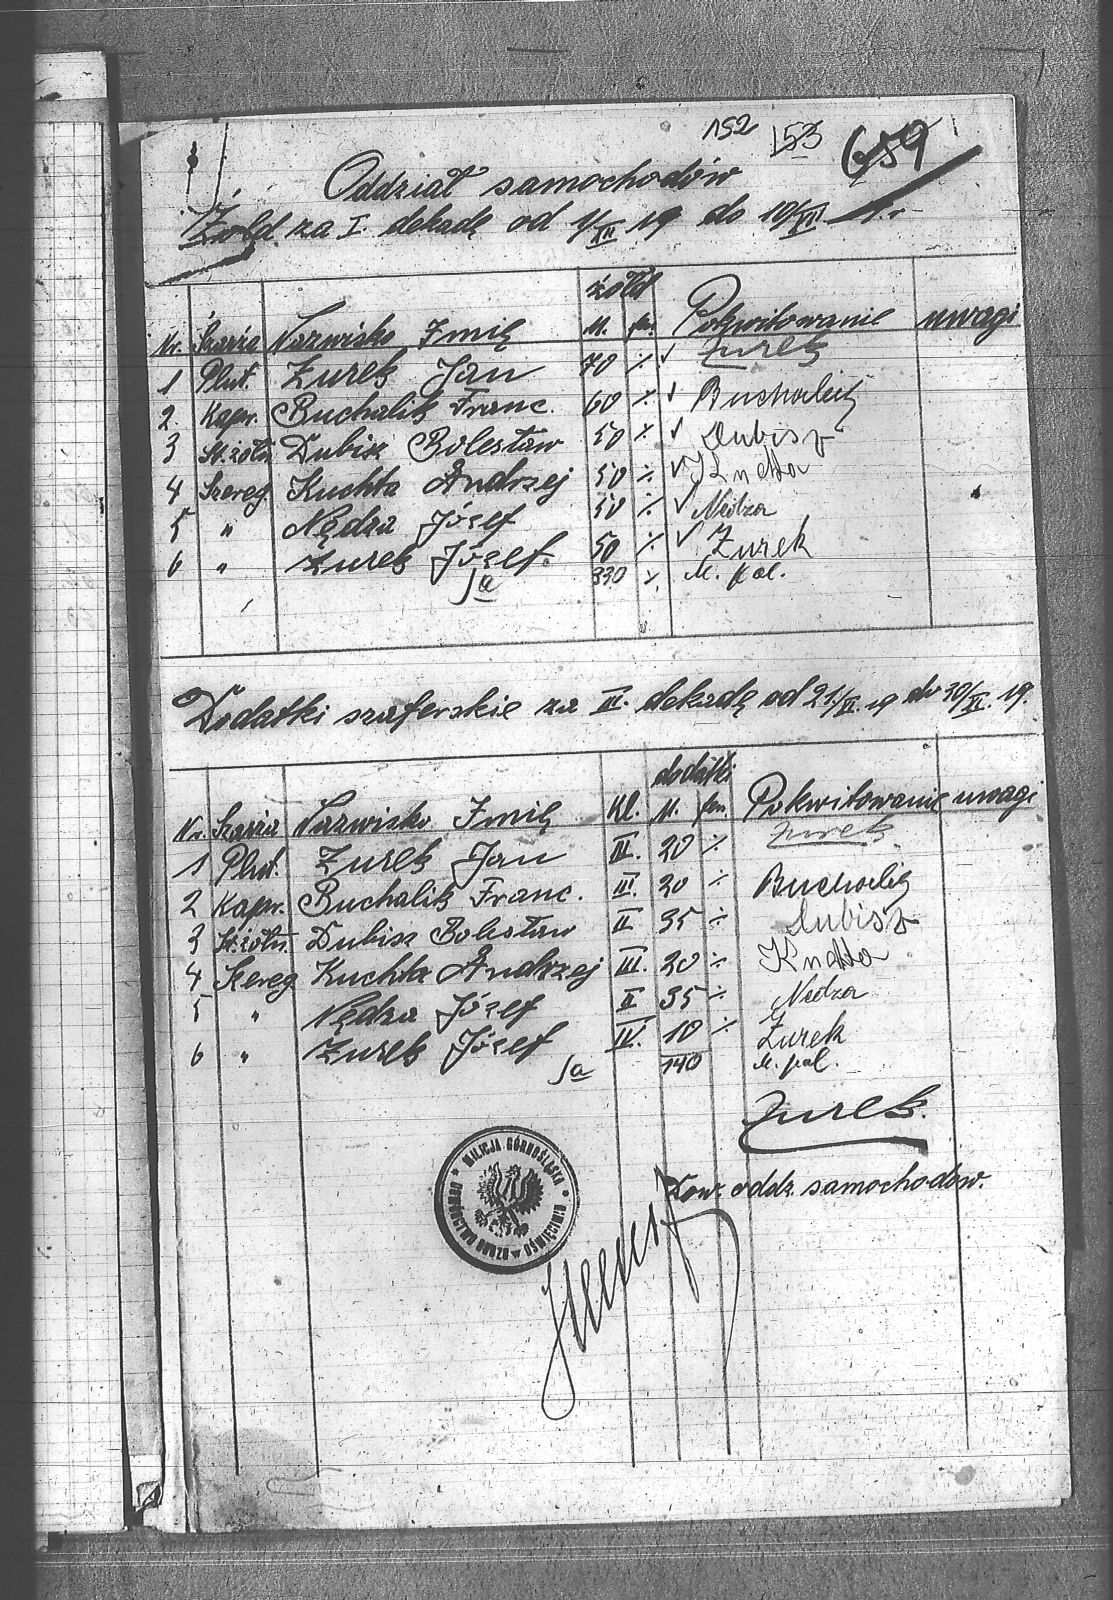 152 153 659
Oddział samochodów
Żołd za I. dekadę od 1/XII 19 do 10/XII
żołd
Nr. Szarża Nazwisko Imię M. fen. Pokwitowanie uwagi
1 Plut. Żurek Jan 70 % ✓ Żurek
2. Kapr. Buchalik Franc. 60 % ✓ Buchalik
3 St. żołn. Dubisz Bolesław 50 % ✓ Dubisz
4 Szereg. Kuchta Andrzej 50 % ✓ Kuchta
5 " Nędza Józef 50 % ✓ Nędza
6 " Żurek Józef. 50 % ✓ Żurek
Sa 330 % M. pol.
Dodatki szoferskie za III. dekadę od 21/XI. 19 do 30/XI. 19.
dodatki
Nr. Szarża Nazwisko Imię Kl. M. fen. Pokwitowanie uwagi
1 Plut. Żurek Jan III. 20 % Żurek
2 Kapr. Buchalik Franc. III. 20 % Buchalik
3 St. żołn. Dubisz Bolesław II 35 % Dubisz
4 Szereg Kuchta Andrzej III. 20 % Kuchta
5 " Nędza Józef II 35 % Nędza
6 " Żurek Józef IV. 10 % Żurek
Sa 140 M. pol.
Żurek.
Dow. oddz. samochodow.
MILICJA GÓRNOŚLĄSKA
DOWÓDZTWO OBOZU W OŚWIĘCIMIU